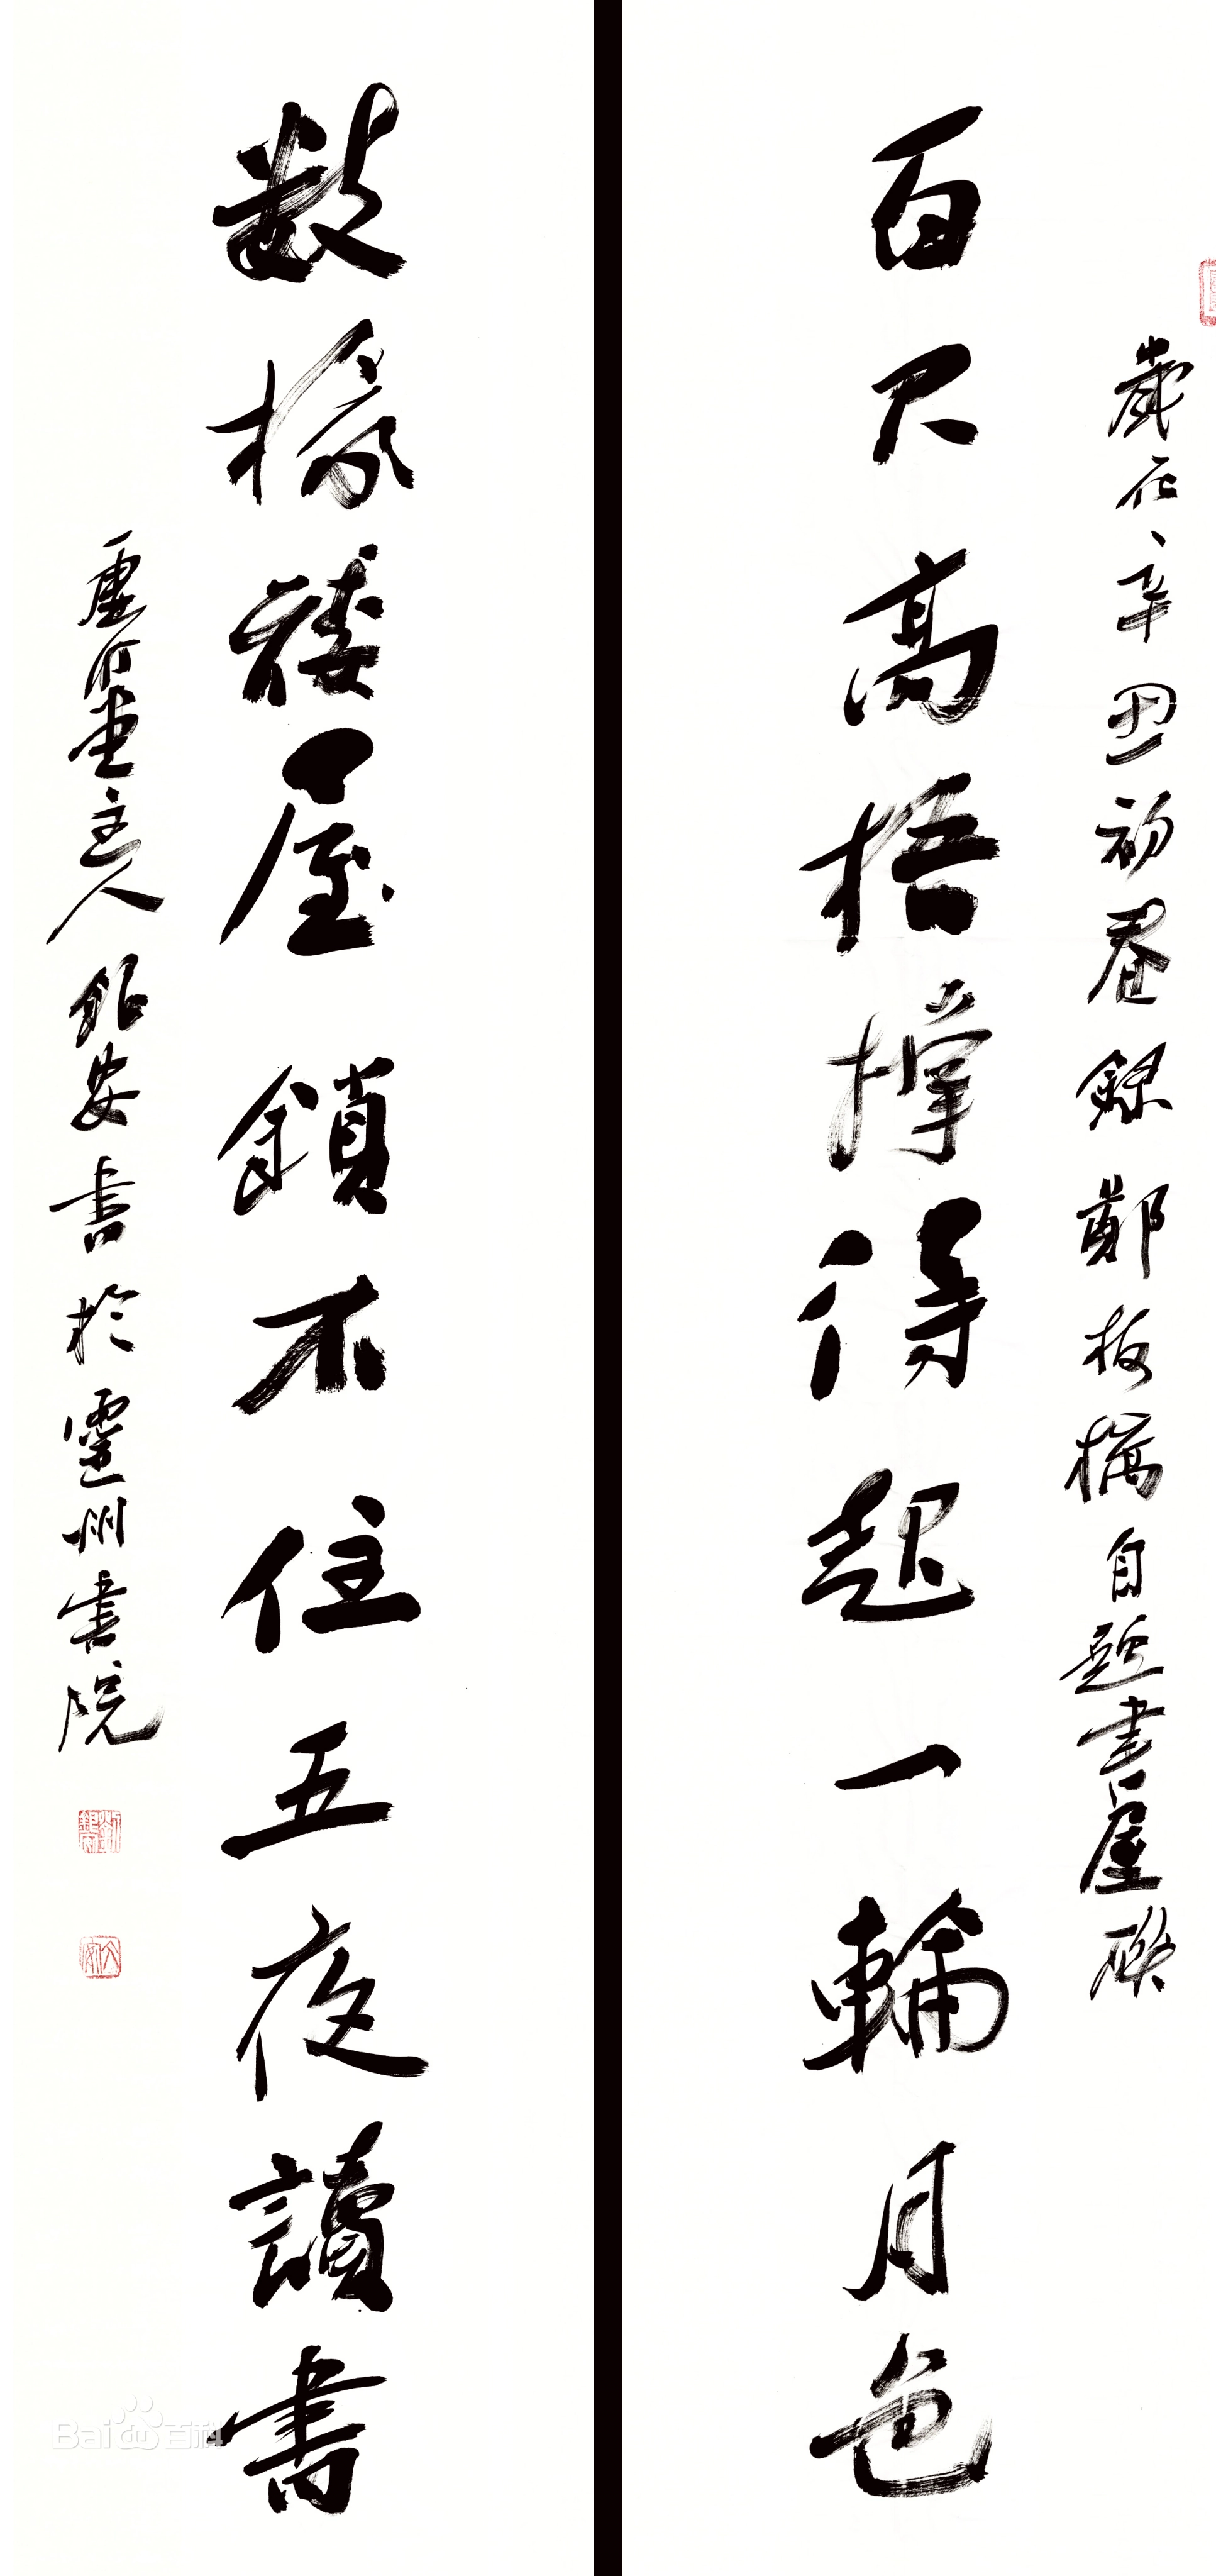 歲在辛丑初春錄鄭板橋自題書屋聯
百尺高梧撐得起一輪月色
數椽矮屋鎖不住五夜讀書
虛竹堂主人 安書於靈州書院
Bai 百科